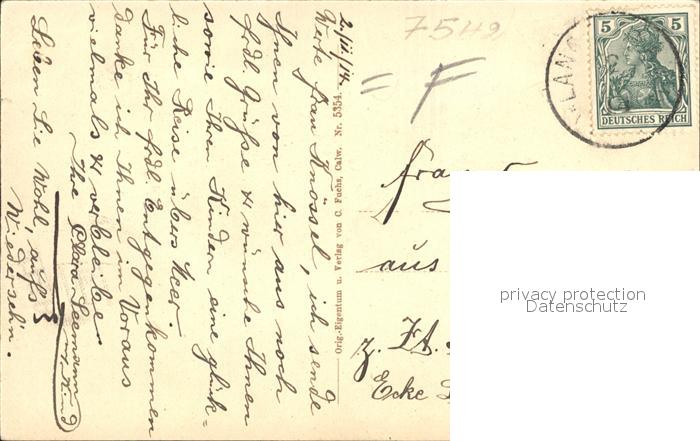 2./II./14.
Werte Frau Knössel, ich sende
Ihnen von hier aus noch
frdl. Grüße & wünsche Ihnen
sowie Ihren Kindern eine glück-
liche Reise übers Meer.
Für Ihr frdl. Entgegenkommen
danke ich Ihnen im Voraus
vielmals & verbleibe
Ihre Clara Seemann
u. Kind
Leben Sie Wohl, aufs
Wiedersehn.
Orig.-Eigentum u. Verlag von C. Fuchs, Calw. Nr. 5354.
7549
= F
5 5
DEUTSCHES REICH
LANG
Frau
aus
z. Zt.
Ecke
privacy protection
Datenschutz